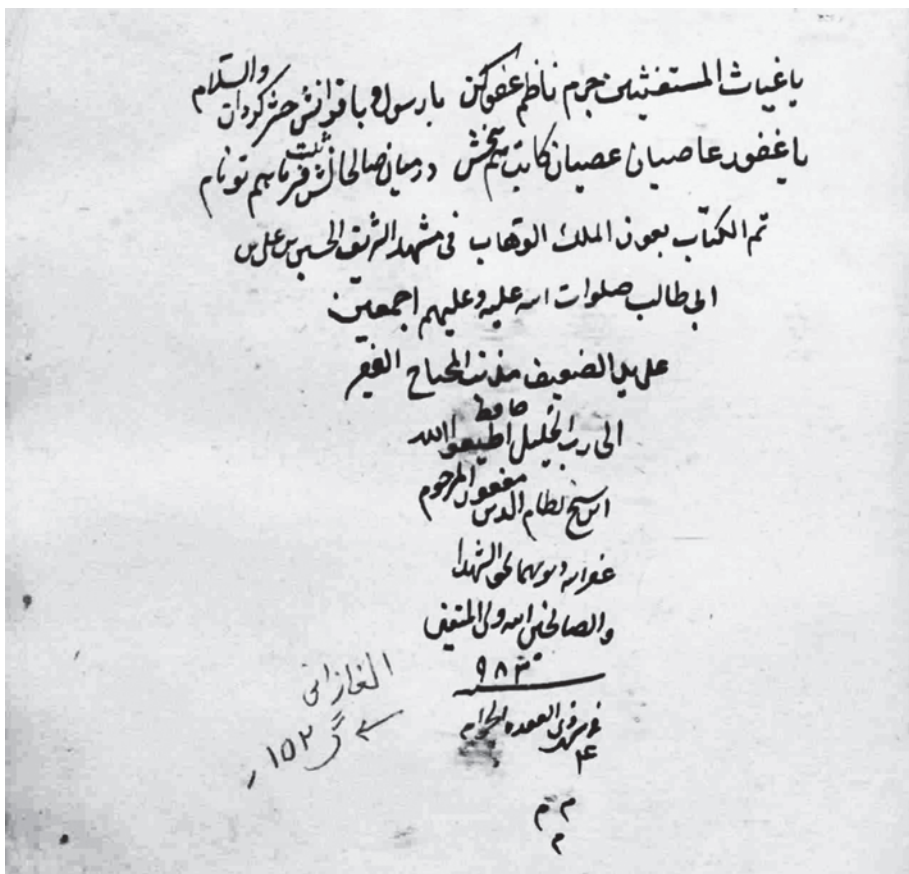 یا غیاث المستغیثین جرم ناظم عفو کن با رسول و با قرانش حشر گردان والسلام
یا غفور عاصیان عصیان کاتب هم ببخش در میان صالحانش ثبت فرما هم تو نام
تم الکتاب بعون الملک الوهاب فی مشهد الشریف الحسین بن علی بن
ابی طالب صلوات الله علیه و علیهم اجمعین
علی ید الضعیف مذنب المحتاج الفقیر
الی رب الجلیل حافظ اطیعوا الله
ابن شیخ نظام الدین مغفور المرحوم
غفر الله ذنوبهما بحق الشهدا
والصالحین الله ولی المتقین
۹۸۳
فی شهر ذی القعده الحرام
۴
م م
م
الغازانی
گ ۱۵۲ ر